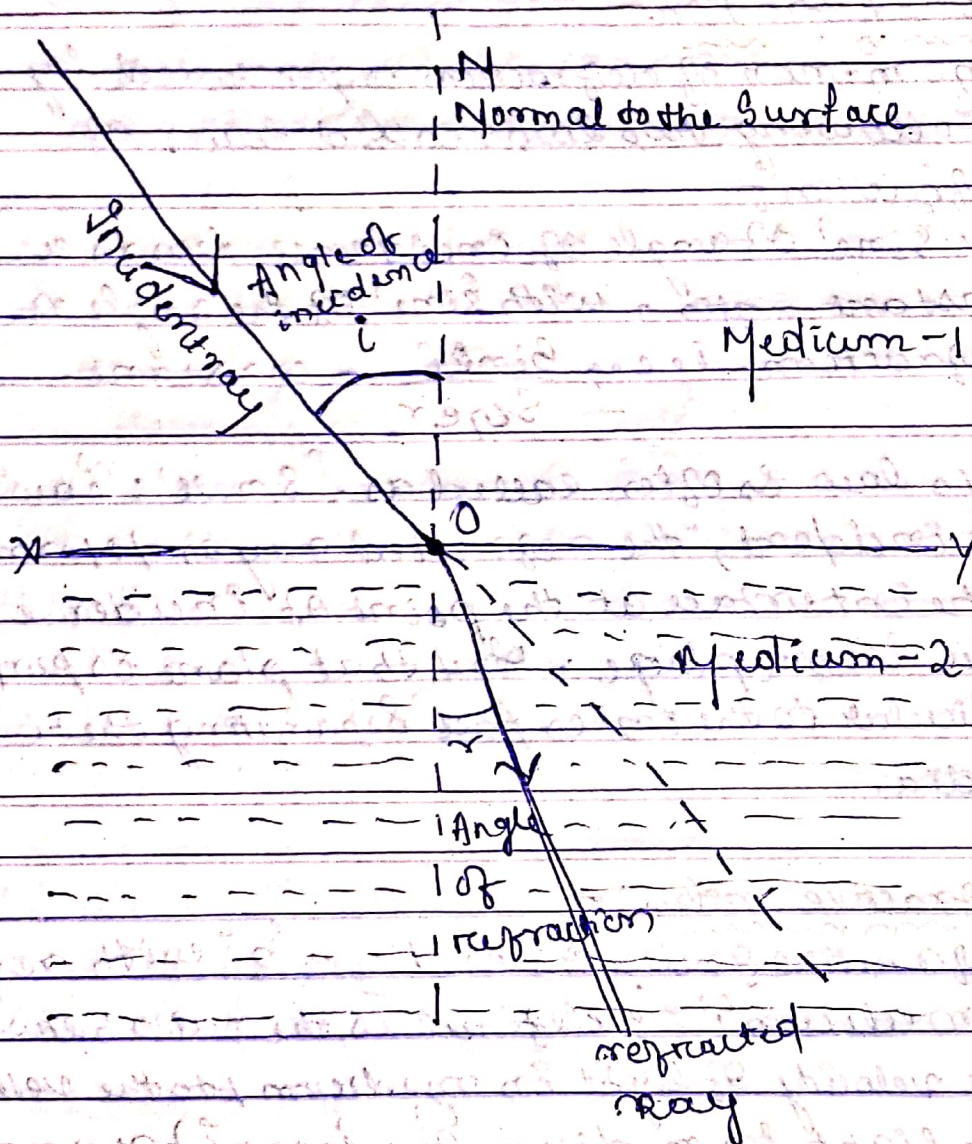 N
Normal to the Surface
Incident ray
Angle of
incidence
i
Medium-1
O
X
Y
Medium-2
r
Angle
of
refraction
refracted
Ray